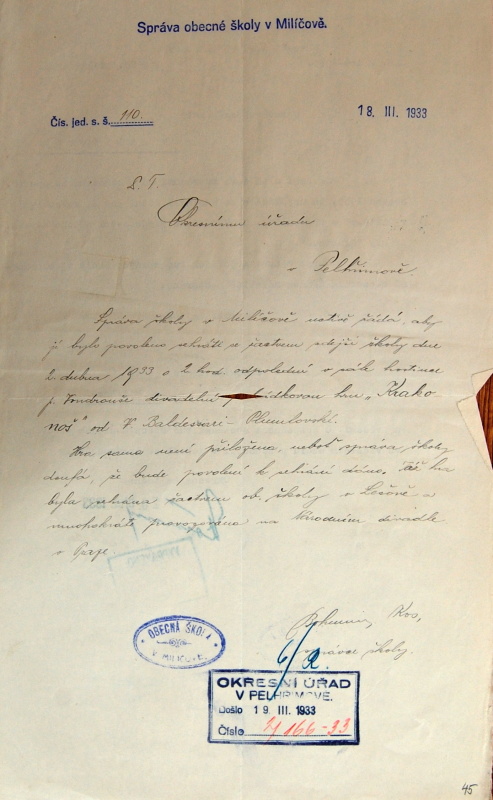 Správa obecné školy v Milíčově.
Čís. jed. s. š. 110.
18. III. 1933
Okresnímu úřadu
v Pelhřimově.
Správa školy v Milíčově uctivě žádá, aby
jí bylo povoleno sehráti s žactvem zdejší školy dne
2. dubna 1933 o 2 hod. odpolední v sále hostince
p. Vondrouše divadelní pohádkovou hru „Krako-
noš" od V. Baldessari-Plumlovské.
Hra sama není přiložena, neboť správa školy
doufá, že bude povolení k sehrání dáno. Táž hra
byla sehrána žactvem ob. školy v
mnohokráte provozována na Národním divadle
v Praze.
Bohumír Kos,
správce školy.
OBECNÁ ŠKOLA
V MILÍČOVĚ
OKRESNÍ ÚŘAD
V PELHŘIMOVĚ.
Došlo 19. III. 1933
Číslo
45